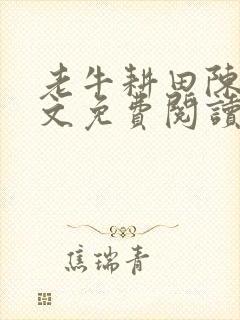 老牛耕田陳
文免費閱讀
焦瑞青